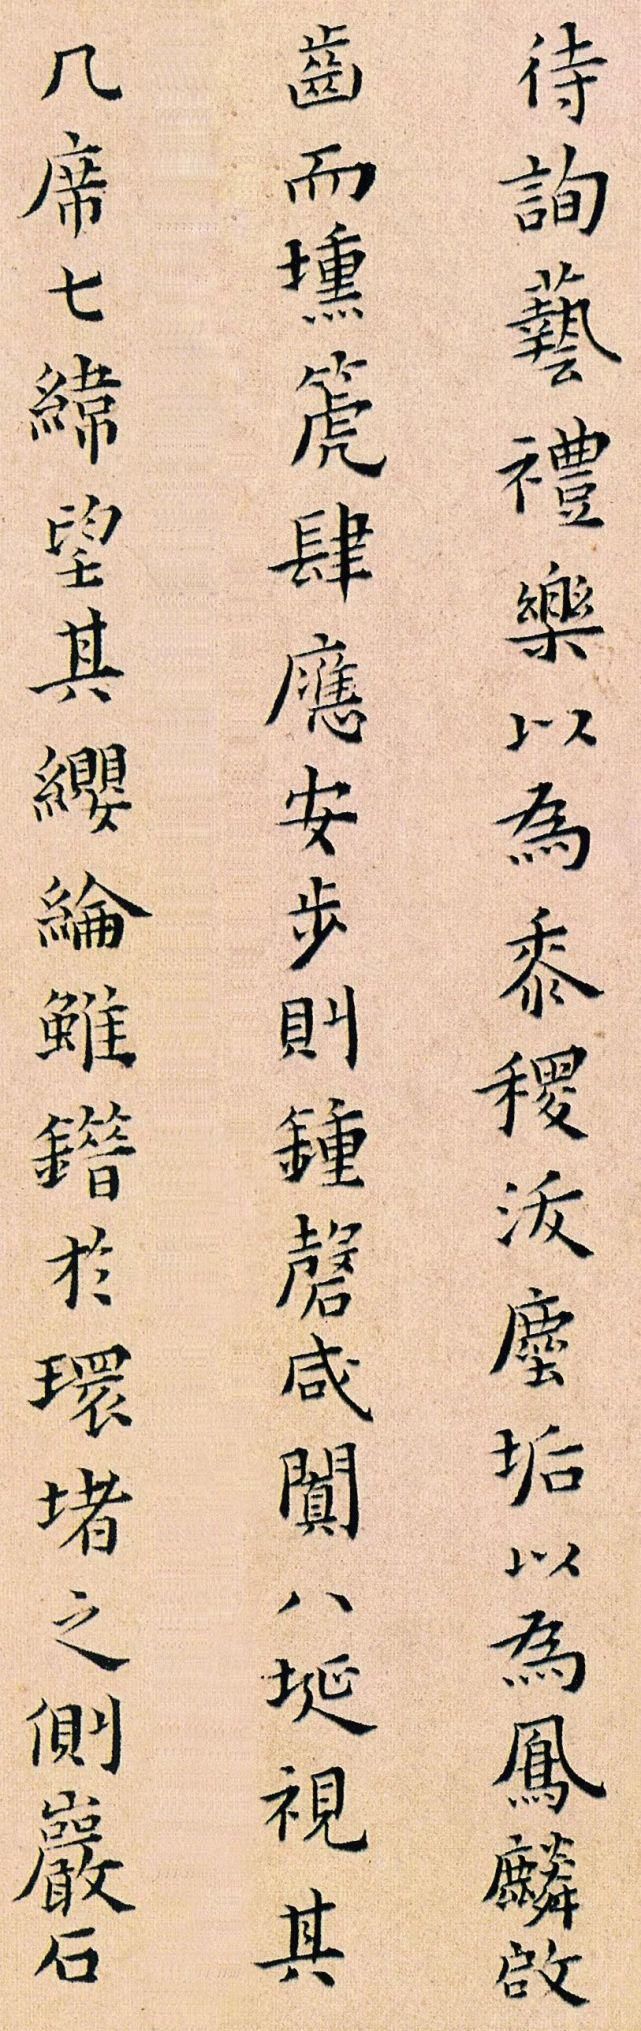 待詢藝禮樂以為黍稷汲塵垢以為鳳麟啟
齒而壎箎肆應安步則鍾磬咸闐八埏視其
几席七緯望其纓綸雖鐕於環堵之側巖石